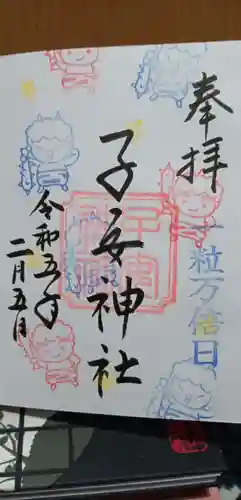 奉拝
一粒万倍日
子安神社
令和五年
二月五日